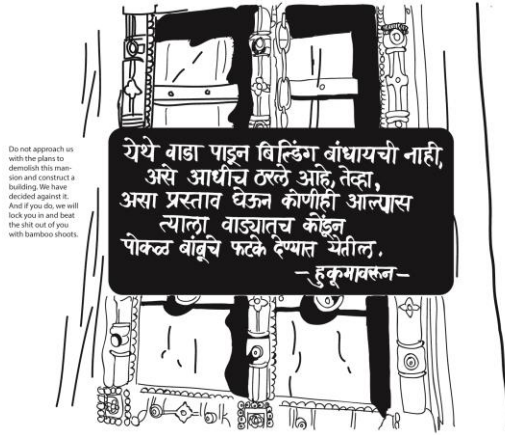 Do not approach us
with the plans to
demolish this man-
sion and construct a
building. We have
decided against it.
And if you do, we will
lock you in and beat
the shit out of you
with bamboo shoots.
येथे वाडा पाडून बिल्डिंग बांधायची नाही,
असे आधीच ठरले आहे, तेव्हा,
असा प्रस्ताव घेऊन कोणीही आल्यास
त्याला वाड्यातच कोंडून
पोकळ बांबूचे फटके देण्यात येतील.
-हुकूमावरून-